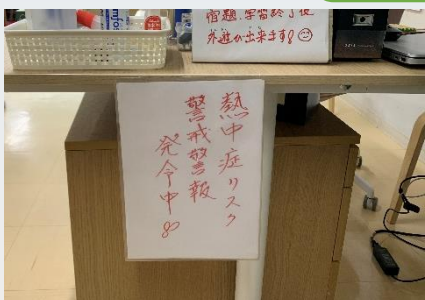 宿題、学習終了後
外遊び出来ます!
熱中症リスク
警戒警報
発令中!!